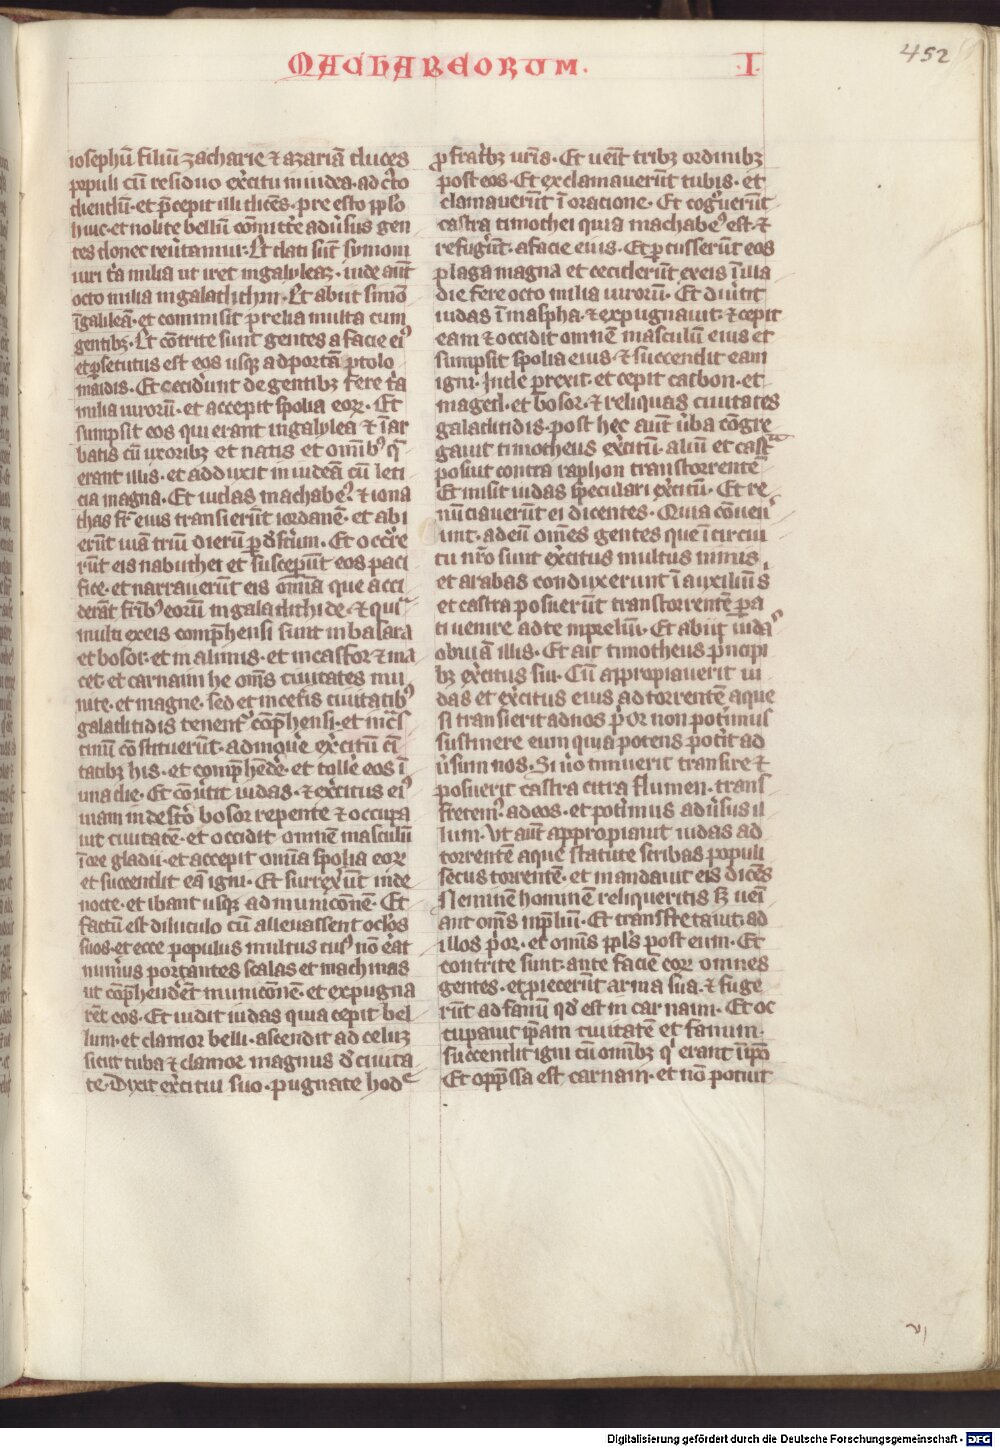 MACHABEORUM. .I.
452
iosephū filiū zacharie ⁊ azariā duces
populi cū residuo exc̓itu in iudea· ad c̓to
diendū· et p̄cepit illi dicēs· pre esto pplo
huic· et nolite bellū cōmitt̓e adu̓sus gen
tes donec reu̓tamur· Et dati sūt symoni
uiri t̓a milia ut iret in galyleaꝫ· iude aūt
octo milia in galadithin· Et abiit simō
ī galileā· et commisit prelia multa cum
gentibꝫ· Et cōtrite sunt gentes a facie eiꝰ
et ꝑsecutus est eos usqꝫ ad portā ptolo
maidis· Et cecid̓unt de gentibꝫ fere t̓a
milia uirorū· et accepit spolia eoꝝ· Et
sumpsit eos qui erant in galylea ⁊ ī ar
batis cū uxoribꝫ et natis et omībꝰ q̄
erant illis· et adduxit in iudeā cū leti
cia magna· Et iudas machabeꝰ· ⁊ iona
thas fr̄ eius transierūt iordanē· et abi
erūt uiā triū dierū ꝑ des̓tum· Et occr̓re
rūt eis nabuthei et suscep̓unt eos paci
fice· et narrauerūt eis om̄ia que acci
derāt fr̄ibꝰ eorū in galadithide· ⁊ quī
multi ex eis comp̓hensi sunt in basara
et bosor· et in alimis· et in casfor ⁊ ma
cet· et carnaim he om̄s ciuitates mu
nite· et magne· sed et in cet̓is ciuitatibꝰ
galaditidis tenent̓ cōp̓hensi· et in cs̄
tinū cōstituerūt· admoue̓ exc̓itū cī
tatibꝫ his· et comp̓hende̓· et tolle̓ eos ī
una die· Et cōu̓tit iudas· ⁊ exc̓itus eiꝰ
uiam in des̓to bosor repente ⁊ occupa
uit ciuitatē· et occidit omnē masculū
ī ore gladii· et accepit om̄ia spolia eoꝝ
et succendit eā igni· Et surrex̓ūt inde
nocte· et ibant usqꝫ ad municōnē· Et
factū est diluculo cū alleuassent oc̓los
suos· et ecce populus multus cuiꝰ nō e̓at
num̓us portantes scalas et machinas
ut cōp̓hende̓t municōnē· et expugna
rēt eos· Et uidit iudas quia cepit bel
lum· et clamor belli· ascendit ad celuꝫ
sicut tuba ⁊ clamor magnus d̓ ciuita
te· Dixit exc̓itui suo· pugnate hodᵉ
ꝓ fratibꝫ ur̄is· Et uēit tribꝫ ordinibꝫ
post eos· Et exclamauerūt tubis· et
clamauerūt ī oracione· Et cog̓uerūt
castra timothei quia machabeꝰ est· ⁊
refug̓ūt· a facie eius· Et ꝑcusserūt eos
plaga magna et ceciderūt ex eis ī illa
die fere octo milia uirorū· Et diu̓tit
iudas ī maspha· ⁊ expugnauit· ⁊ cepit
eam ⁊ occidit omnē masculū eius et
sumpsit spolia eius· ⁊ succendit eam
igni· Inde perexit· et cepit catbon· et
maged· et bosor· ⁊ reliquas ciuitates
galaditidis· post hec aūt ūba cōgre
gauit timotheus exc̓itū· aliū et castͣ
posuit contra raphon trans torrentē
Et misit iudas speculari exc̓itū· Et re
nūciauerūt ei dicentes· Quia cōuen̄
iunt· ad eū om̄es gentes que ī circui
tu nr̄o sunt exc̓itus multus nimis
et arabas conduxerunt ī auxiliū s̄
et castra posuerūt trans torrentē pa
ti uenire ad te in preliū· Et abiit iudaˢ
obuiā illis· Et ait timotheus principi
bꝫ exc̓itus sui· Cū appropiauerit iu
das et exc̓itus eius ad torrentē aque
si transierit ad nos p̓or non potimus
sustinere eum quia potens pot̓it ad
ūsum nos· Si ūo timuerit transire ⁊
posuerit castra citra flumen· trans
fretemꝰ ad eos· et pot̓imus adūsus il
lum· Vt aūt appropiauit iudas ad
torrentē aque statute scribas populi
secus torrentē· et mandauit eis dicēs
Neminē hominē reliqueritis sꝫ ueī
ant om̄s in p̓liū· Et transfretauit· ad
illos p̓or· et om̄is ppl̓s post eum· Et
contrite sunt· ante faciē eoꝝ omnes
gentes· et proiecerūt arma sua· ⁊ fuge
rūt ad fanū qd̓ est in carnaim· Et oc
cupauit ip̄am ciuitatē et fanum·
succendit igni cū omībꝫ q̓ erant ī ip̄o
Et opp̄ssa est carnaim· et nō potuit
Digitalisierung gefördert durch die Deutsche Forschungsgemeinschaft - DFG